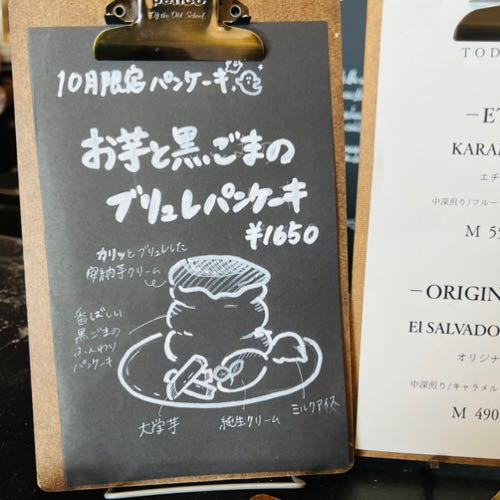 PENCO
Off the Old School.
10月限定パンケーキ
お芋と黒ごまの
ブリュレパンケーキ
¥1650
カリッとブリュレした
安納芋クリーム
香ばしい
黒ごまの
ふんわり
パンケーキ
大学芋
純生クリーム
ミルクアイス
TOD
－ET
KARAM
エチ
中深煎り/フルー
M 55
－ORIGIN
El SALVADO
オリジナ
中深煎り/キャラメル
M 490